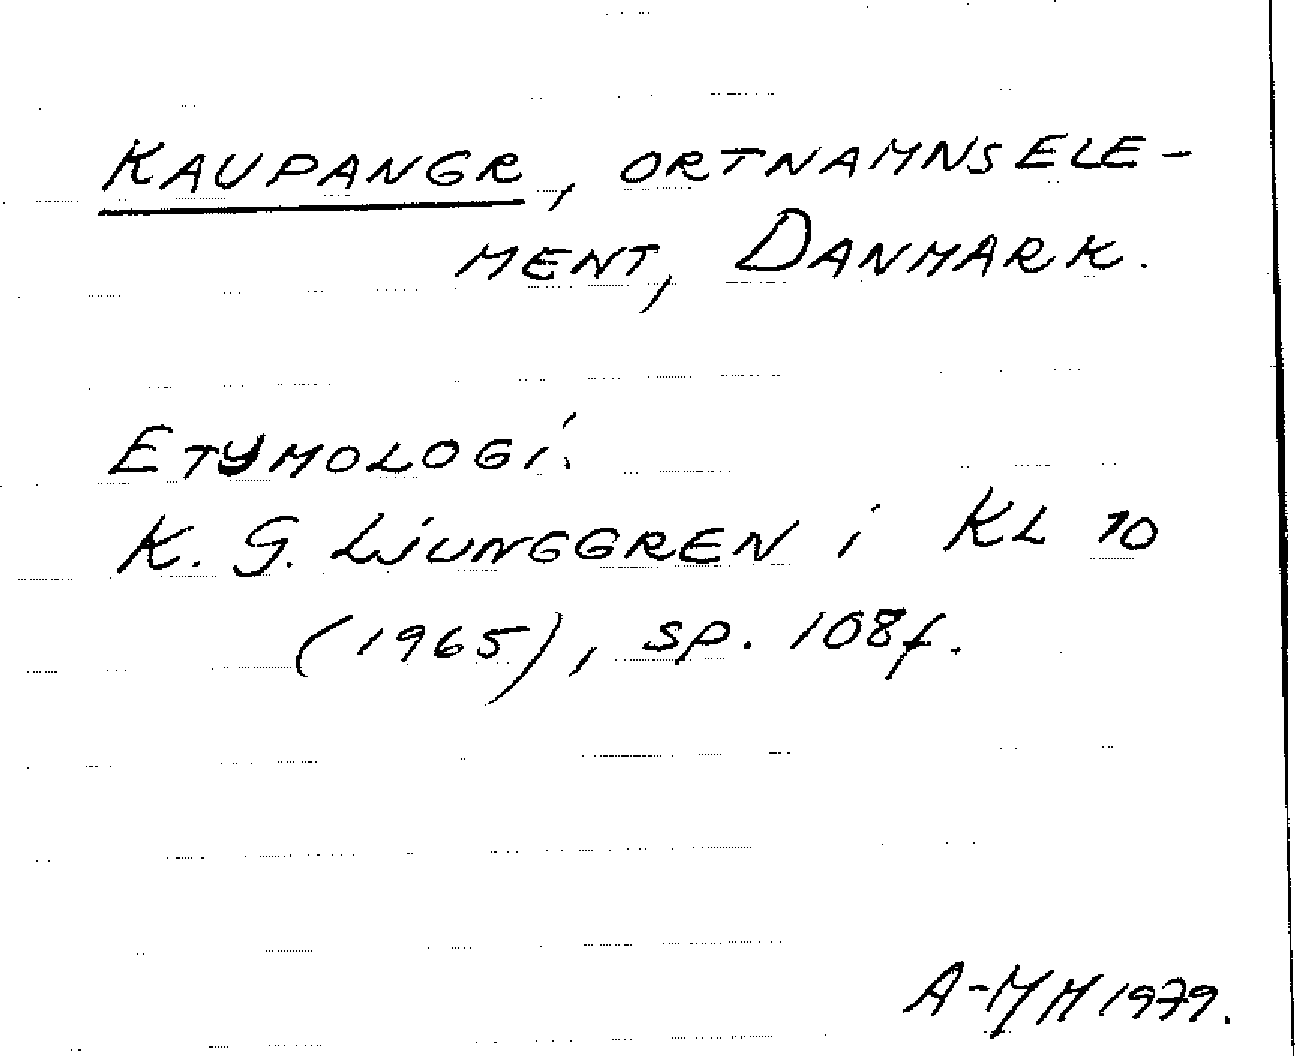 KAUPANGR, ORTNAMNSELE-
MENT, DANMARK.
ETYMOLOGI:
K. G. LJUNGGREN i KL 10
(1965), SP. 108f.
A-MH 1979.